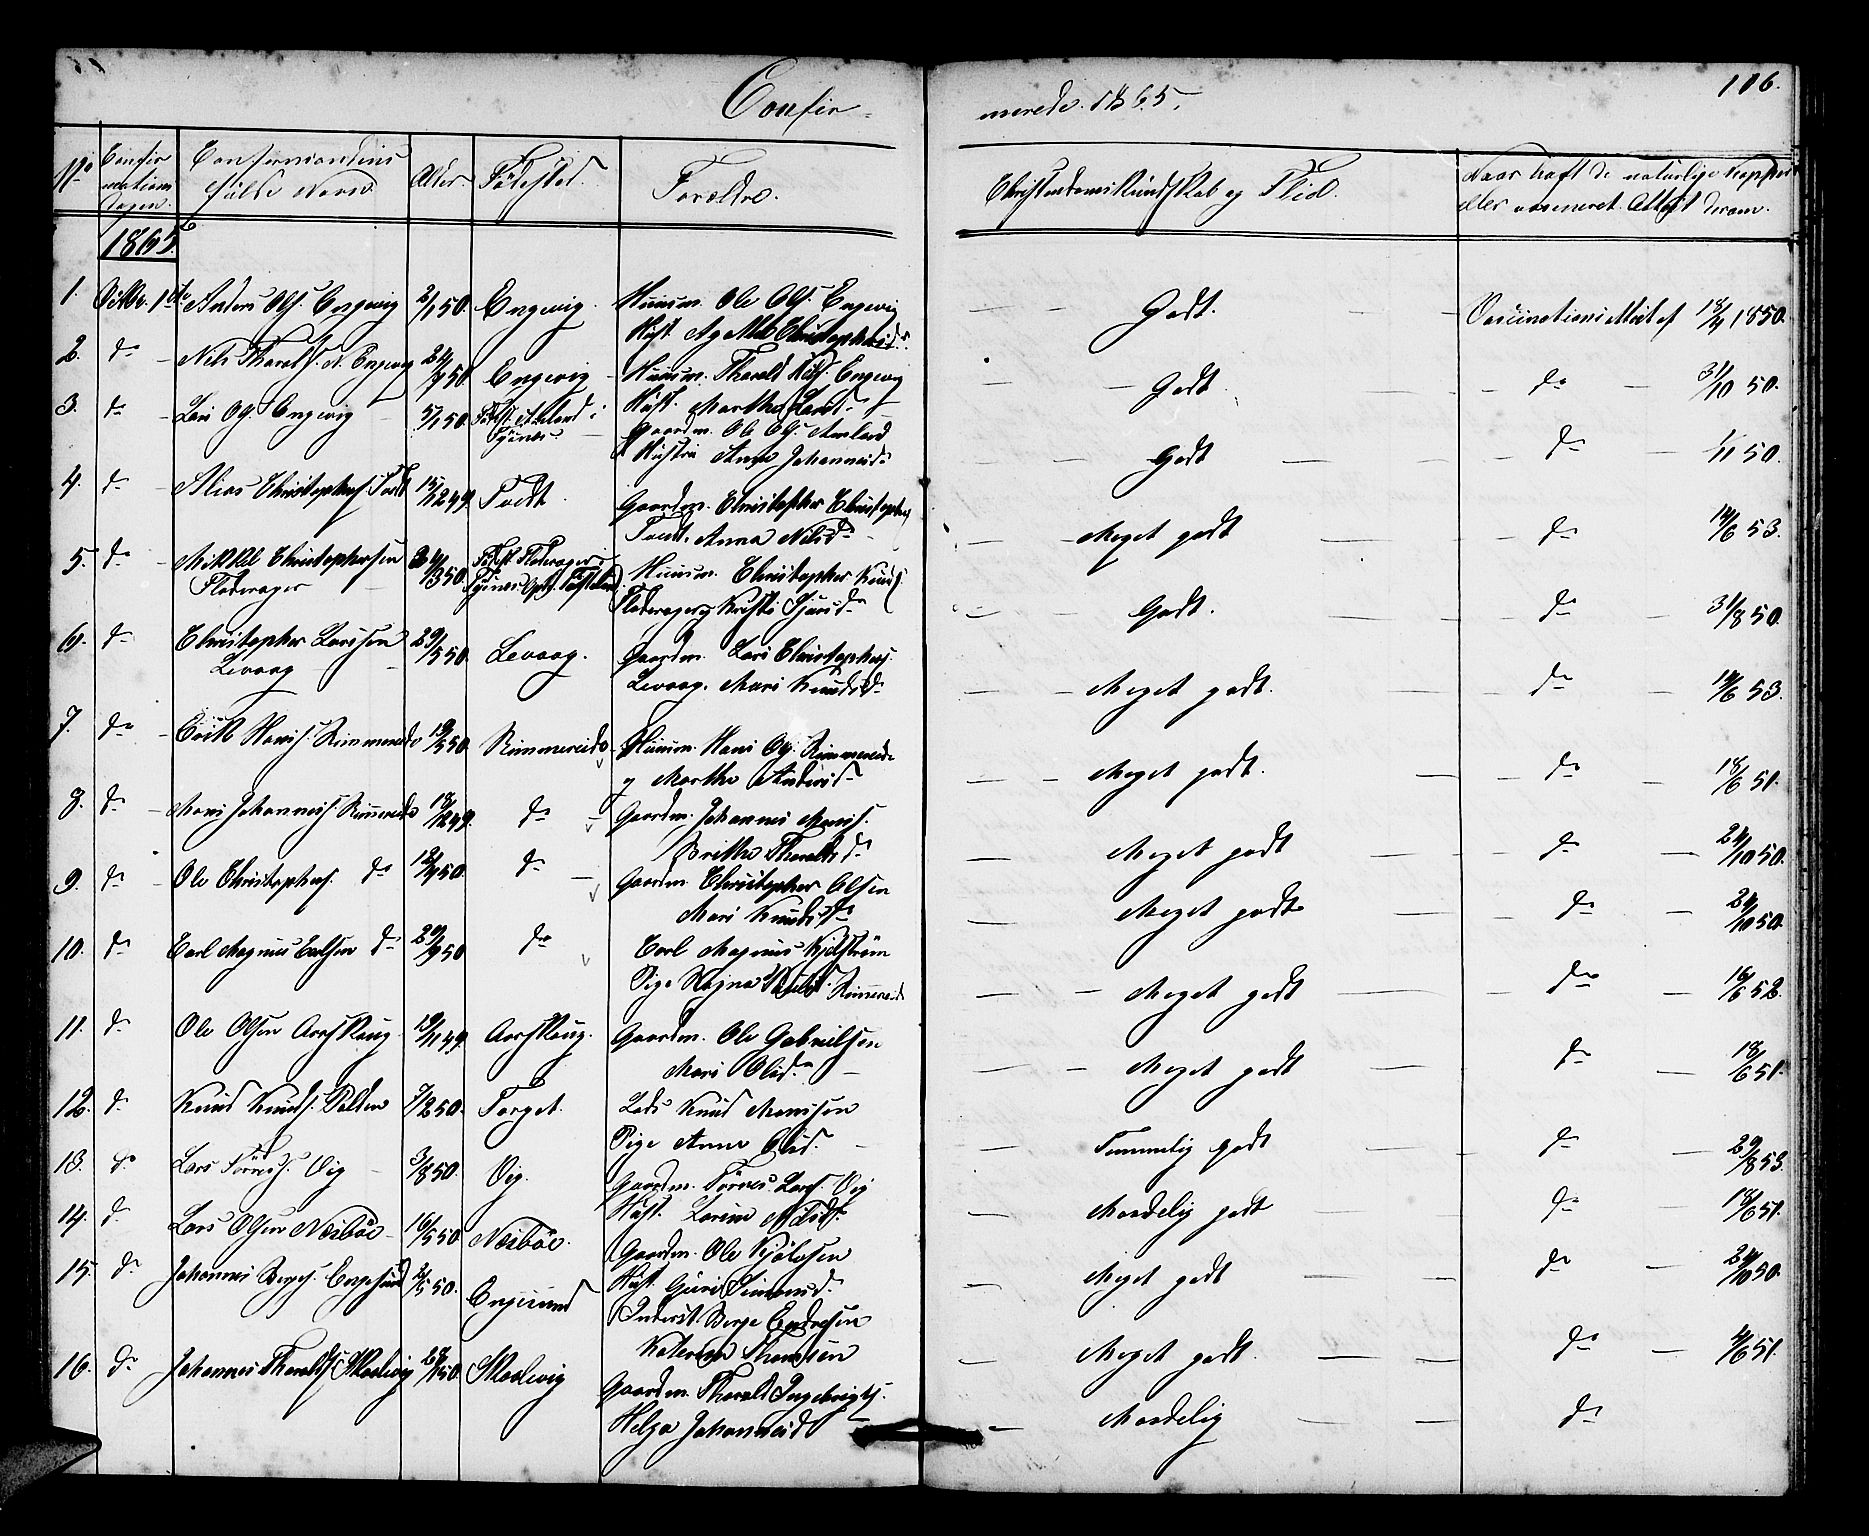 Confir-
merede 1865.
106.
No
Confirmations Dagen.
Confirmandens fulde Navn.
Alder.
Födested.
Forældre.
Christendomskundskab og Flid.
Naar haft de naturlige Kopper eller vaccineret. Attest derom.
1865.
1. Octbr. 1ste Anders Ols. Engevig 2/1 50. Engevig. Huusm. Ole Ols. Engevig
Godt. Vaccinations Attest af 18/4 1850.
2. do Nels Tharalds. Engevig 24/7 50 Engevig Huusm. Tharald Engevig
Hust. Martha Larsd.
Godt do 31/10 50.
3. do Lars Ols. Engevig 5/1 50. Födest. i Tysnes Gaardm. Ole Ols.
Hustru Anna Johannesd.
Godt do 1/11 50.
4. do Elias Christophers. Toedt 15/12 49. Toedt. Gaardm. Christopher Christophers.
Toedt, Anna Nilsd.
Meget godt do 14/6 53.
5. do Mikkel Christophersen 24/3 50. Födest. Flaterager i Huusm. Christopher Knuds.
Flaterager Tysnes. Flateragerog Kristi Sjursd.
Godt. do 31/8 50.
6. do Christopher Larssen 29/5 50. Levaag. Gaardm. Lars Christophers.
Levaag Levaag. Mari Knudsd.
Meget godt. do 14/6 53.
7. do Hans. Rimmereide 19/5 50. Rimmereide Huusm. Hans Ols. Rimmereide
og Martha Andersd.
Meget godt. do 18/6 51.
8. do Mons Johanness. Rimmereide 18/12 49. do Gaardm. Johannes Mons.
Brithe Tharaldsd.
Meget godt do 24/10 50.
9. do Ole Christophers. do 12/9 50. do Gaardm. Christopher Olsen
Mari Knudsd.
Meget godt do 24/10 50.
10. do Carl Magnus Carlsen do 29/9 50 do Carl Magnus Kjelström
Pige Ragna Rimmereide
Meget godt do 16/6 52.
11. do Ole Olsen Aarskoug 19/11 49. Aarskoug. Gaardm. Ole Gabrielsen
Mari Olsd.
Meget godt do 18/6 51.
12. do Knud Knuds. Polden 7/2 50. Torget. Lods Knud Monsen
Pige Anna Olsd.
Temmelig godt do 29/8 53.
13. do Lars Törres. Vig 3/8 50. Vig. Gaardm. Törres Lars. Vig
Hust. Larine Nilsd.
Maadelig godt do 18/6 51.
14. do Lars Olsen Nesböe 16/5 50 Nesböe. Gaardm. Ole Kjölosen
Hust. Guri Simensd.
Meget godt do 24/10 50.
15. do Johannes Berges. Engesund 2/5 50. Engesund Inderst. Berge Endresen
Thomsen
Meget godt. do 4/6 51.
16. do Johannes Tharalds. Skaalevig 28/1 50. Skaalevig Gaardm. Tharald Ingebrigts.
Helga Johannesd.
Maadelig do